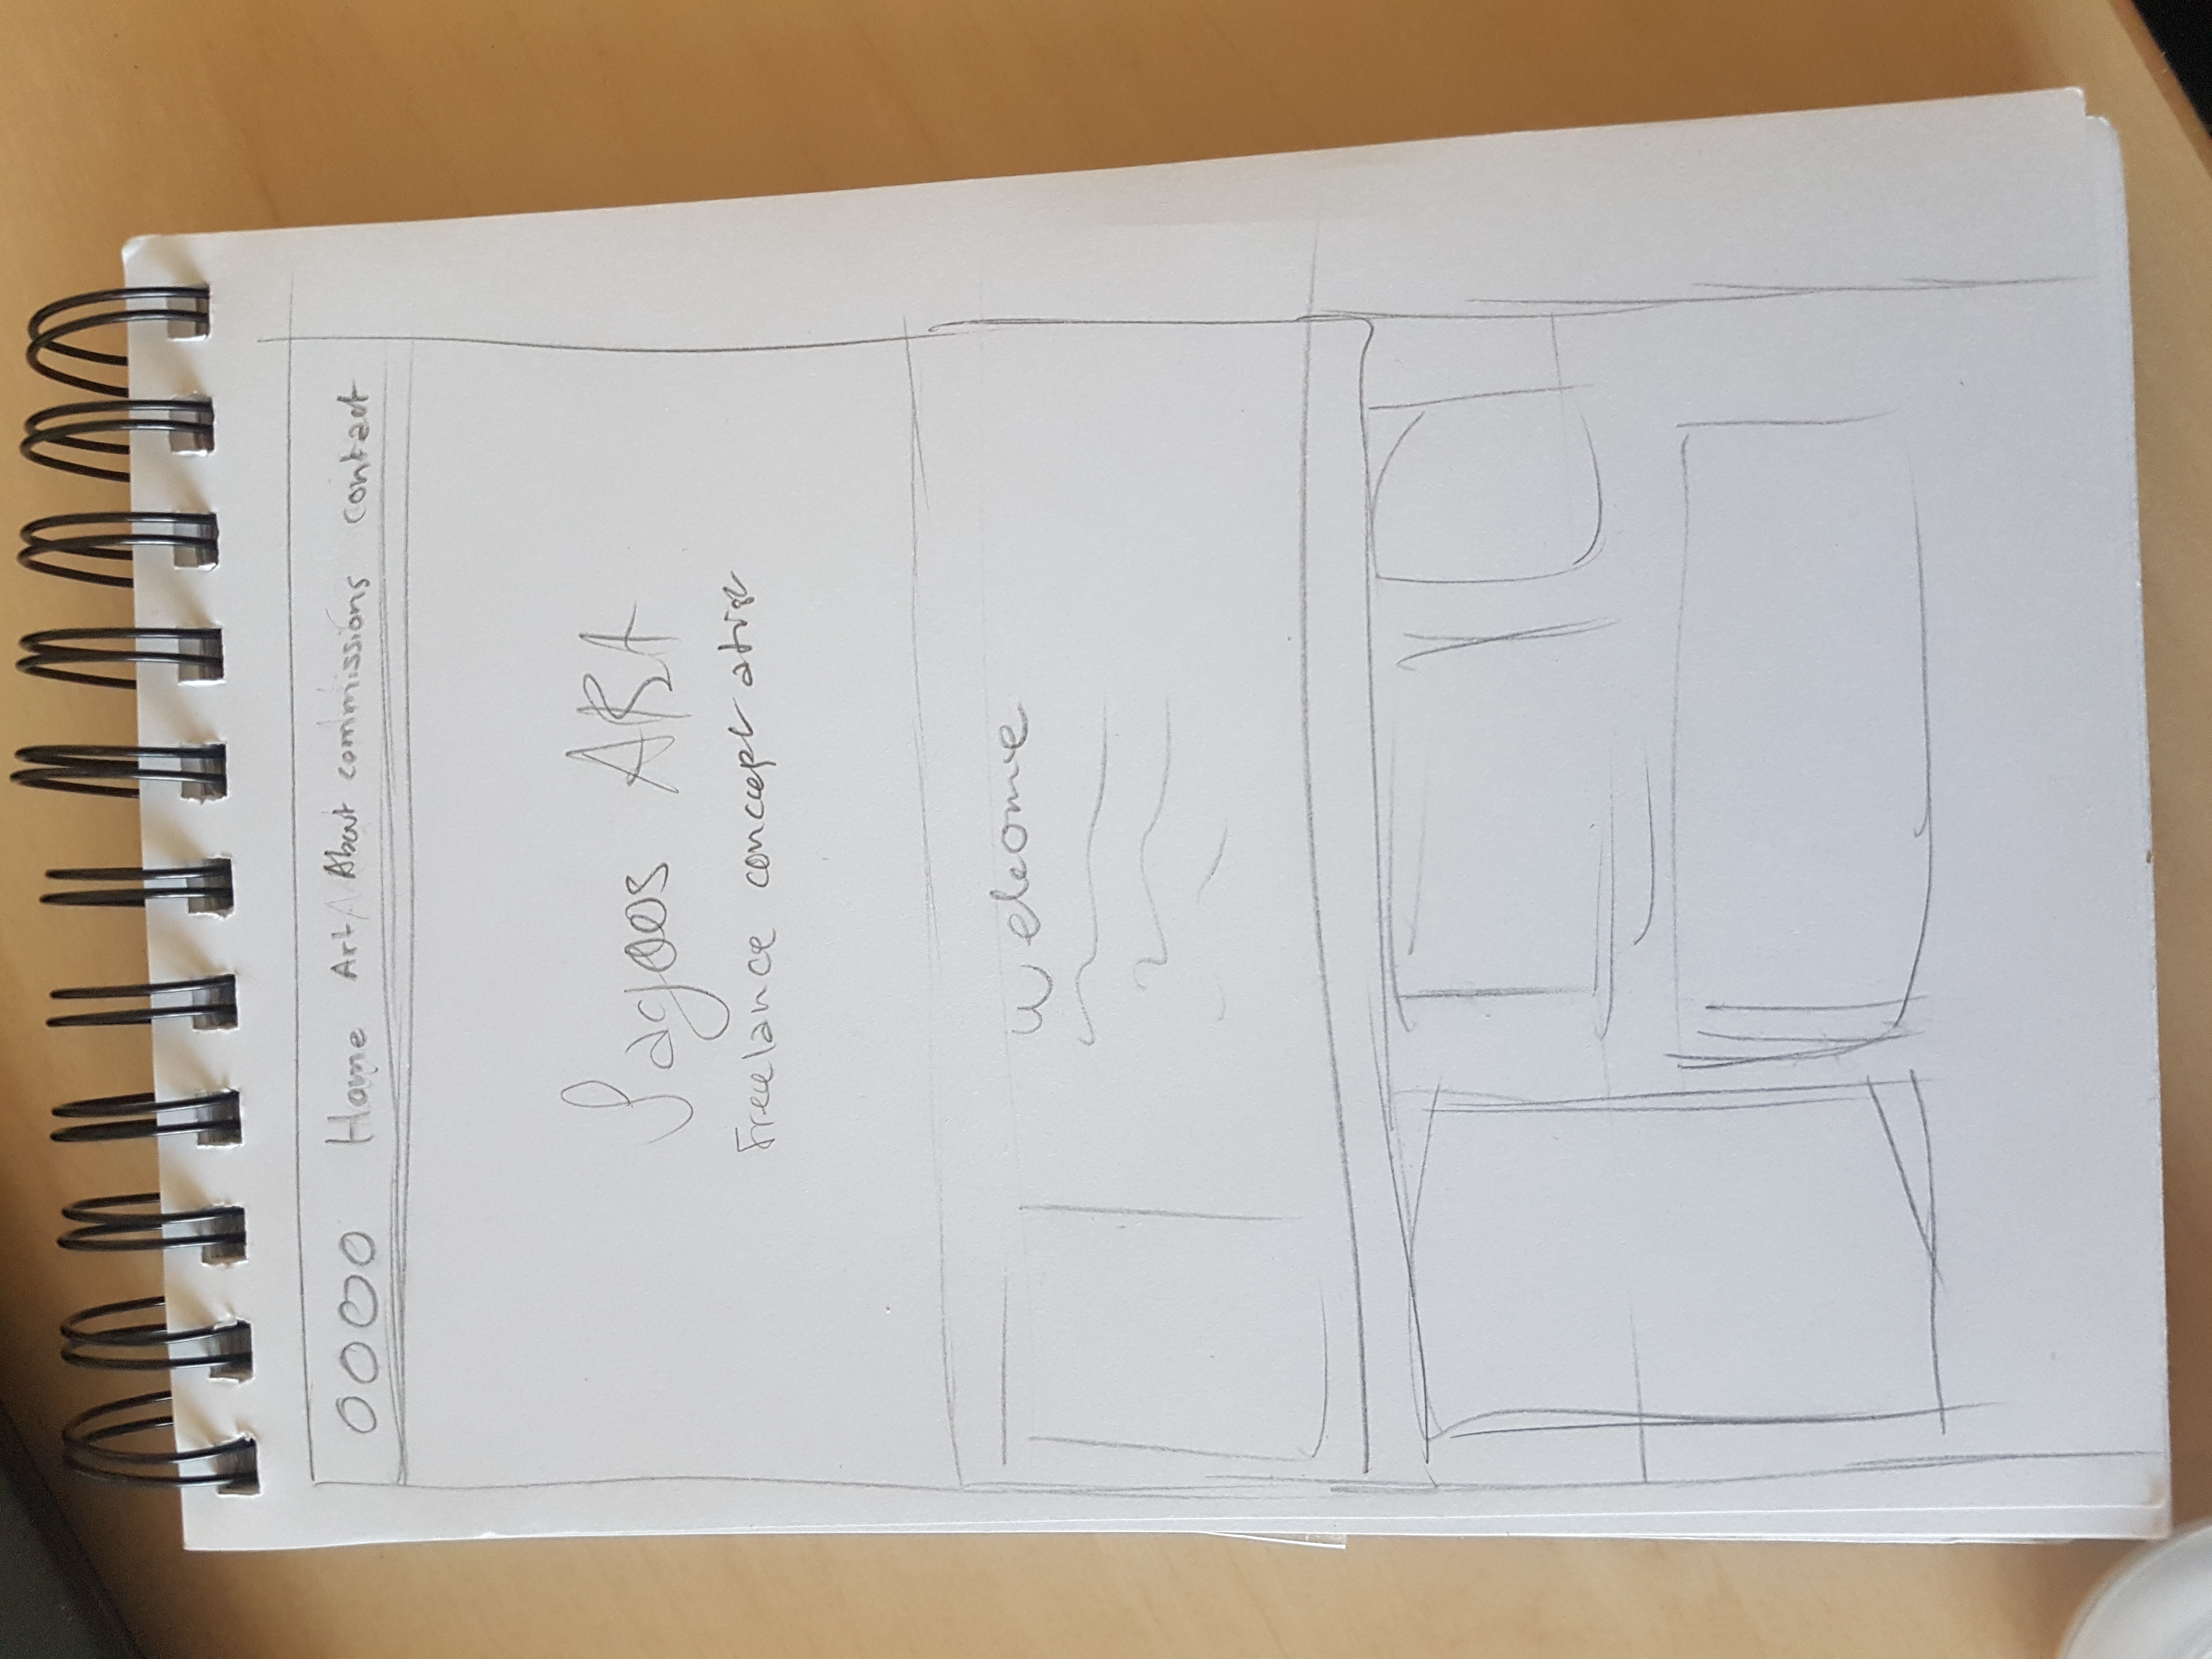 Home Art About commissions contact
Jagoos ARt
Freelance concept atist
Welcome